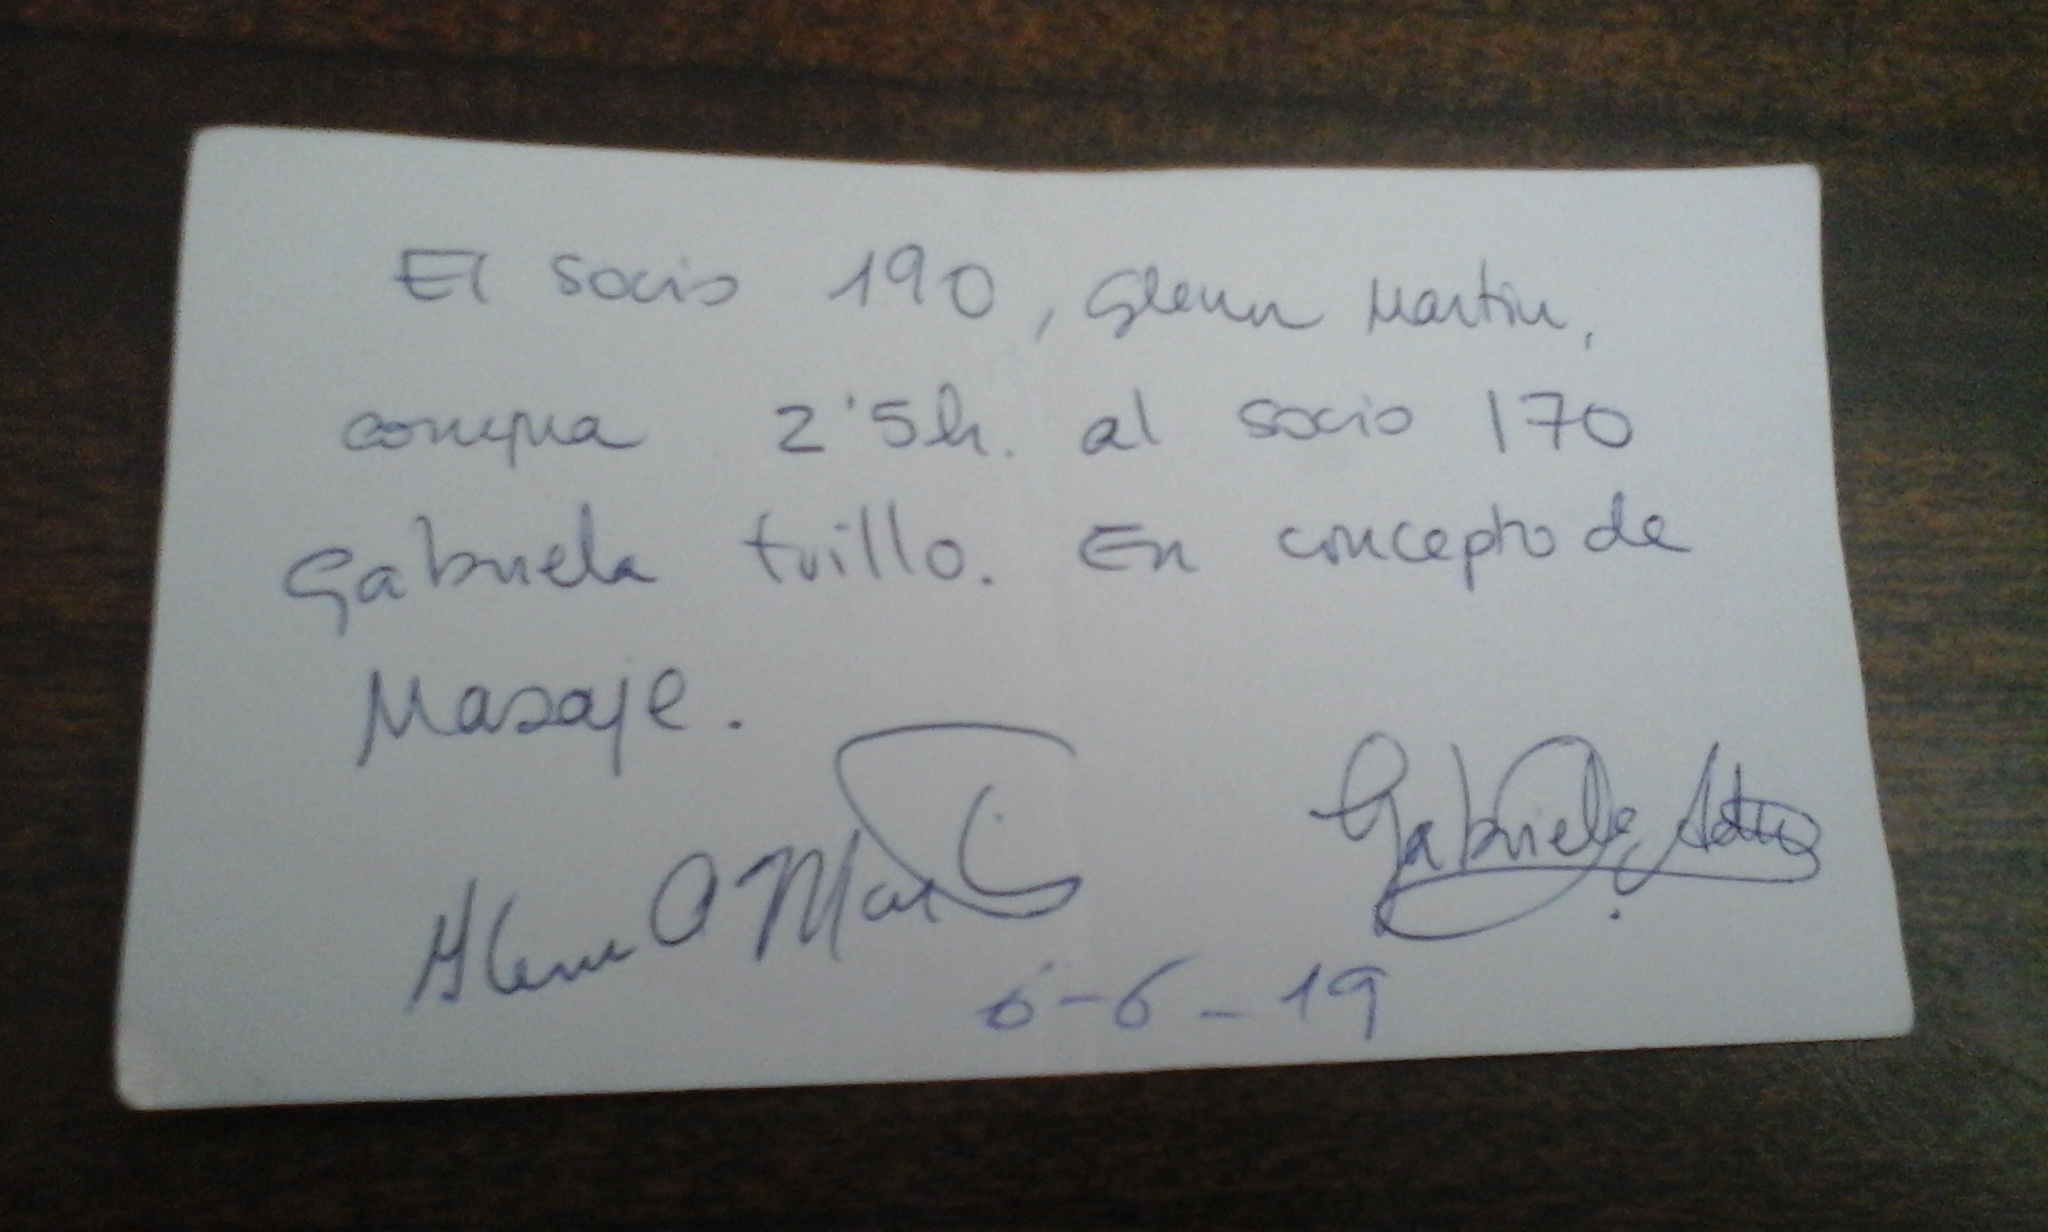 El socio 190, Glenn Martin,
compra 2'5h. al socio 170
Gabriela trillo. En concepto de
Masaje.
Glenn O Mart
Gabriela
6-6-19